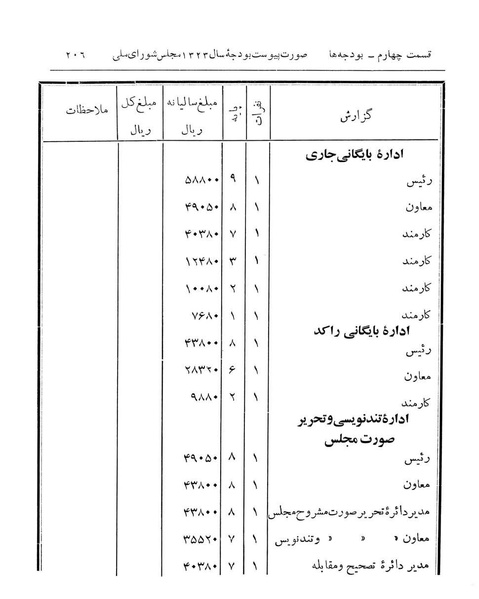 قسمت چهارم ــ بودجه‌ها صورت پیوست بودجهٔ سال ۱۳۲۳ مجلس شورای ملی ۲۰۶
گزارش نفرات پایه مبلغ سالیانه ریال مبلغ کل ریال ملاحظات
ادارهٔ بایگانی جاری
رئیس ۱ ۹ ۵۸۸۰۰
معاون ۱ ۸ ۴۹۰۵۰
کارمند ۱ ۷ ۴۰۳۸۰
کارمند ۱ ۳ ۱۲۴۸۰
کارمند ۱ ۲ ۱۰۰۸۰
کارمند ۱ ۱ ۷۶۸۰
ادارهٔ بایگانی راکد
رئیس ۱ ۸ ۴۳۸۰۰
معاون ۱ ۶ ۲۸۳۲۰
کارمند ۱ ۲ ۹۸۸۰
ادارهٔ تندنویسی و تحریر
صورت مجلس
رئیس ۱ ۸ ۴۹۰۵۰
معاون ۱ ۸ ۴۳۸۰۰
مدیر دائرهٔ تحریر صورت مشروح مجلس ۱ ۸ ۴۳۸۰۰
معاون » » » وتندنویس ۱ ۷ ۳۵۵۲۰
مدیر دائرهٔ تصحیح و مقابله ۱ ۷ ۴۰۳۸۰